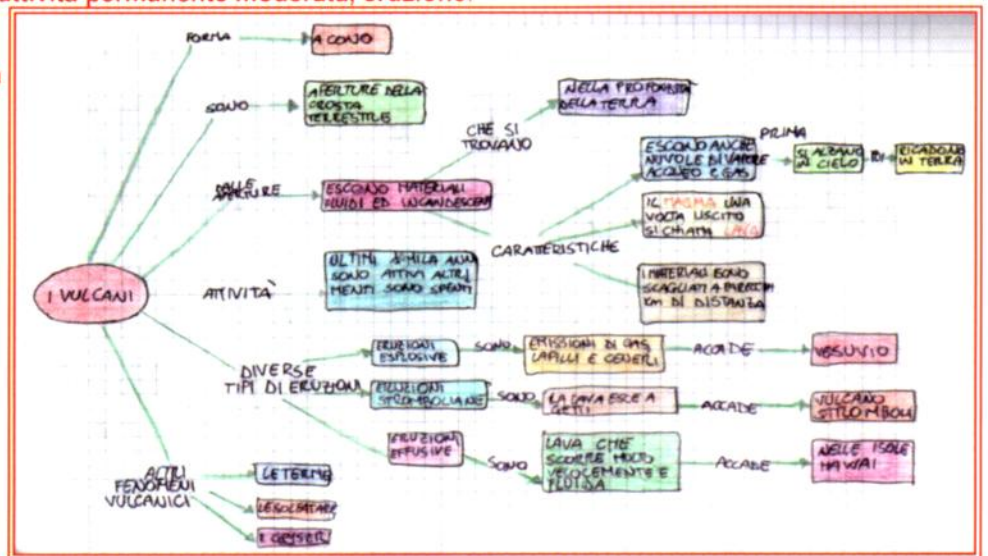 attività permanente moderata, eruzione.
FORMA
A CONO
SONO
APERTURE DELLA
CROSTA
TERRESTRE
DALLE
APERTURE
ESCONO MATERIALI
FLUIDI ED INCANDESCENTI
CHE SI
TROVANO
NELLA PROFONDITÀ
DELLA TERRA
CARATTERISTICHE
ESCONO ANCHE
NUVOLE DI VAPORE
ACQUEO E GAS
PRIMA
SI ALZANO
IN CIELO
RICADONO
IN TERRA
IL MAGMA UNA
VOLTA USCITO
SI CHIAMA LAVA
I MATERIALI SONO
SCAGLIATI A PARECCHI
KM DI DISTANZA
I VULCANI
ATTIVITÀ
ULTIMI MILA ANNI
SONO ATTIVI ALTRI
MENTI SONO SPENTI
DIVERSE
TIPI DI ERUZIONI
ERUZIONI
ESPLOSIVE
SONO
EMISSIONI DI GAS
LAPILLI E CENERI
ACCADE
VESUVIO
ERUZIONI
STROMBOLIANE
SONO
LA LAVA ESCE A
GETTI
ACCADE
VULCANO
STROMBOLI
ERUZIONI
EFFUSIVE
SONO
LAVA CHE
SCORRE MOLTO
VELOCEMENTE E
FLUIDA
ACCADE
NELLE ISOLE
HAWAI
ALTRI
FENOMENI
VULCANICI
LE TERME
LE SOLFATARE
I GEYSER